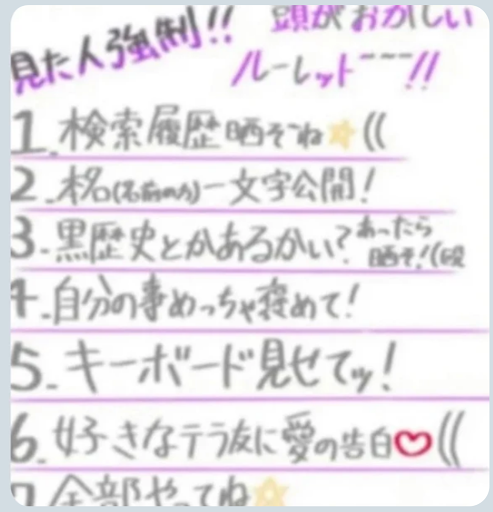 見た人強制!! 頭がおかしい
ルーレット~~~!!
1. 検索履歴晒そうね☆((
2. 本名(名前のみ)一文字公開!
3. 黒歴史とかあるかい?あったら
晒そ!((殴
4. 自分の事めっちゃ褒めて!
5. キーボード見せてッ!
6. 好きなテラ友に愛の告白♡((
7 全部やってね☆